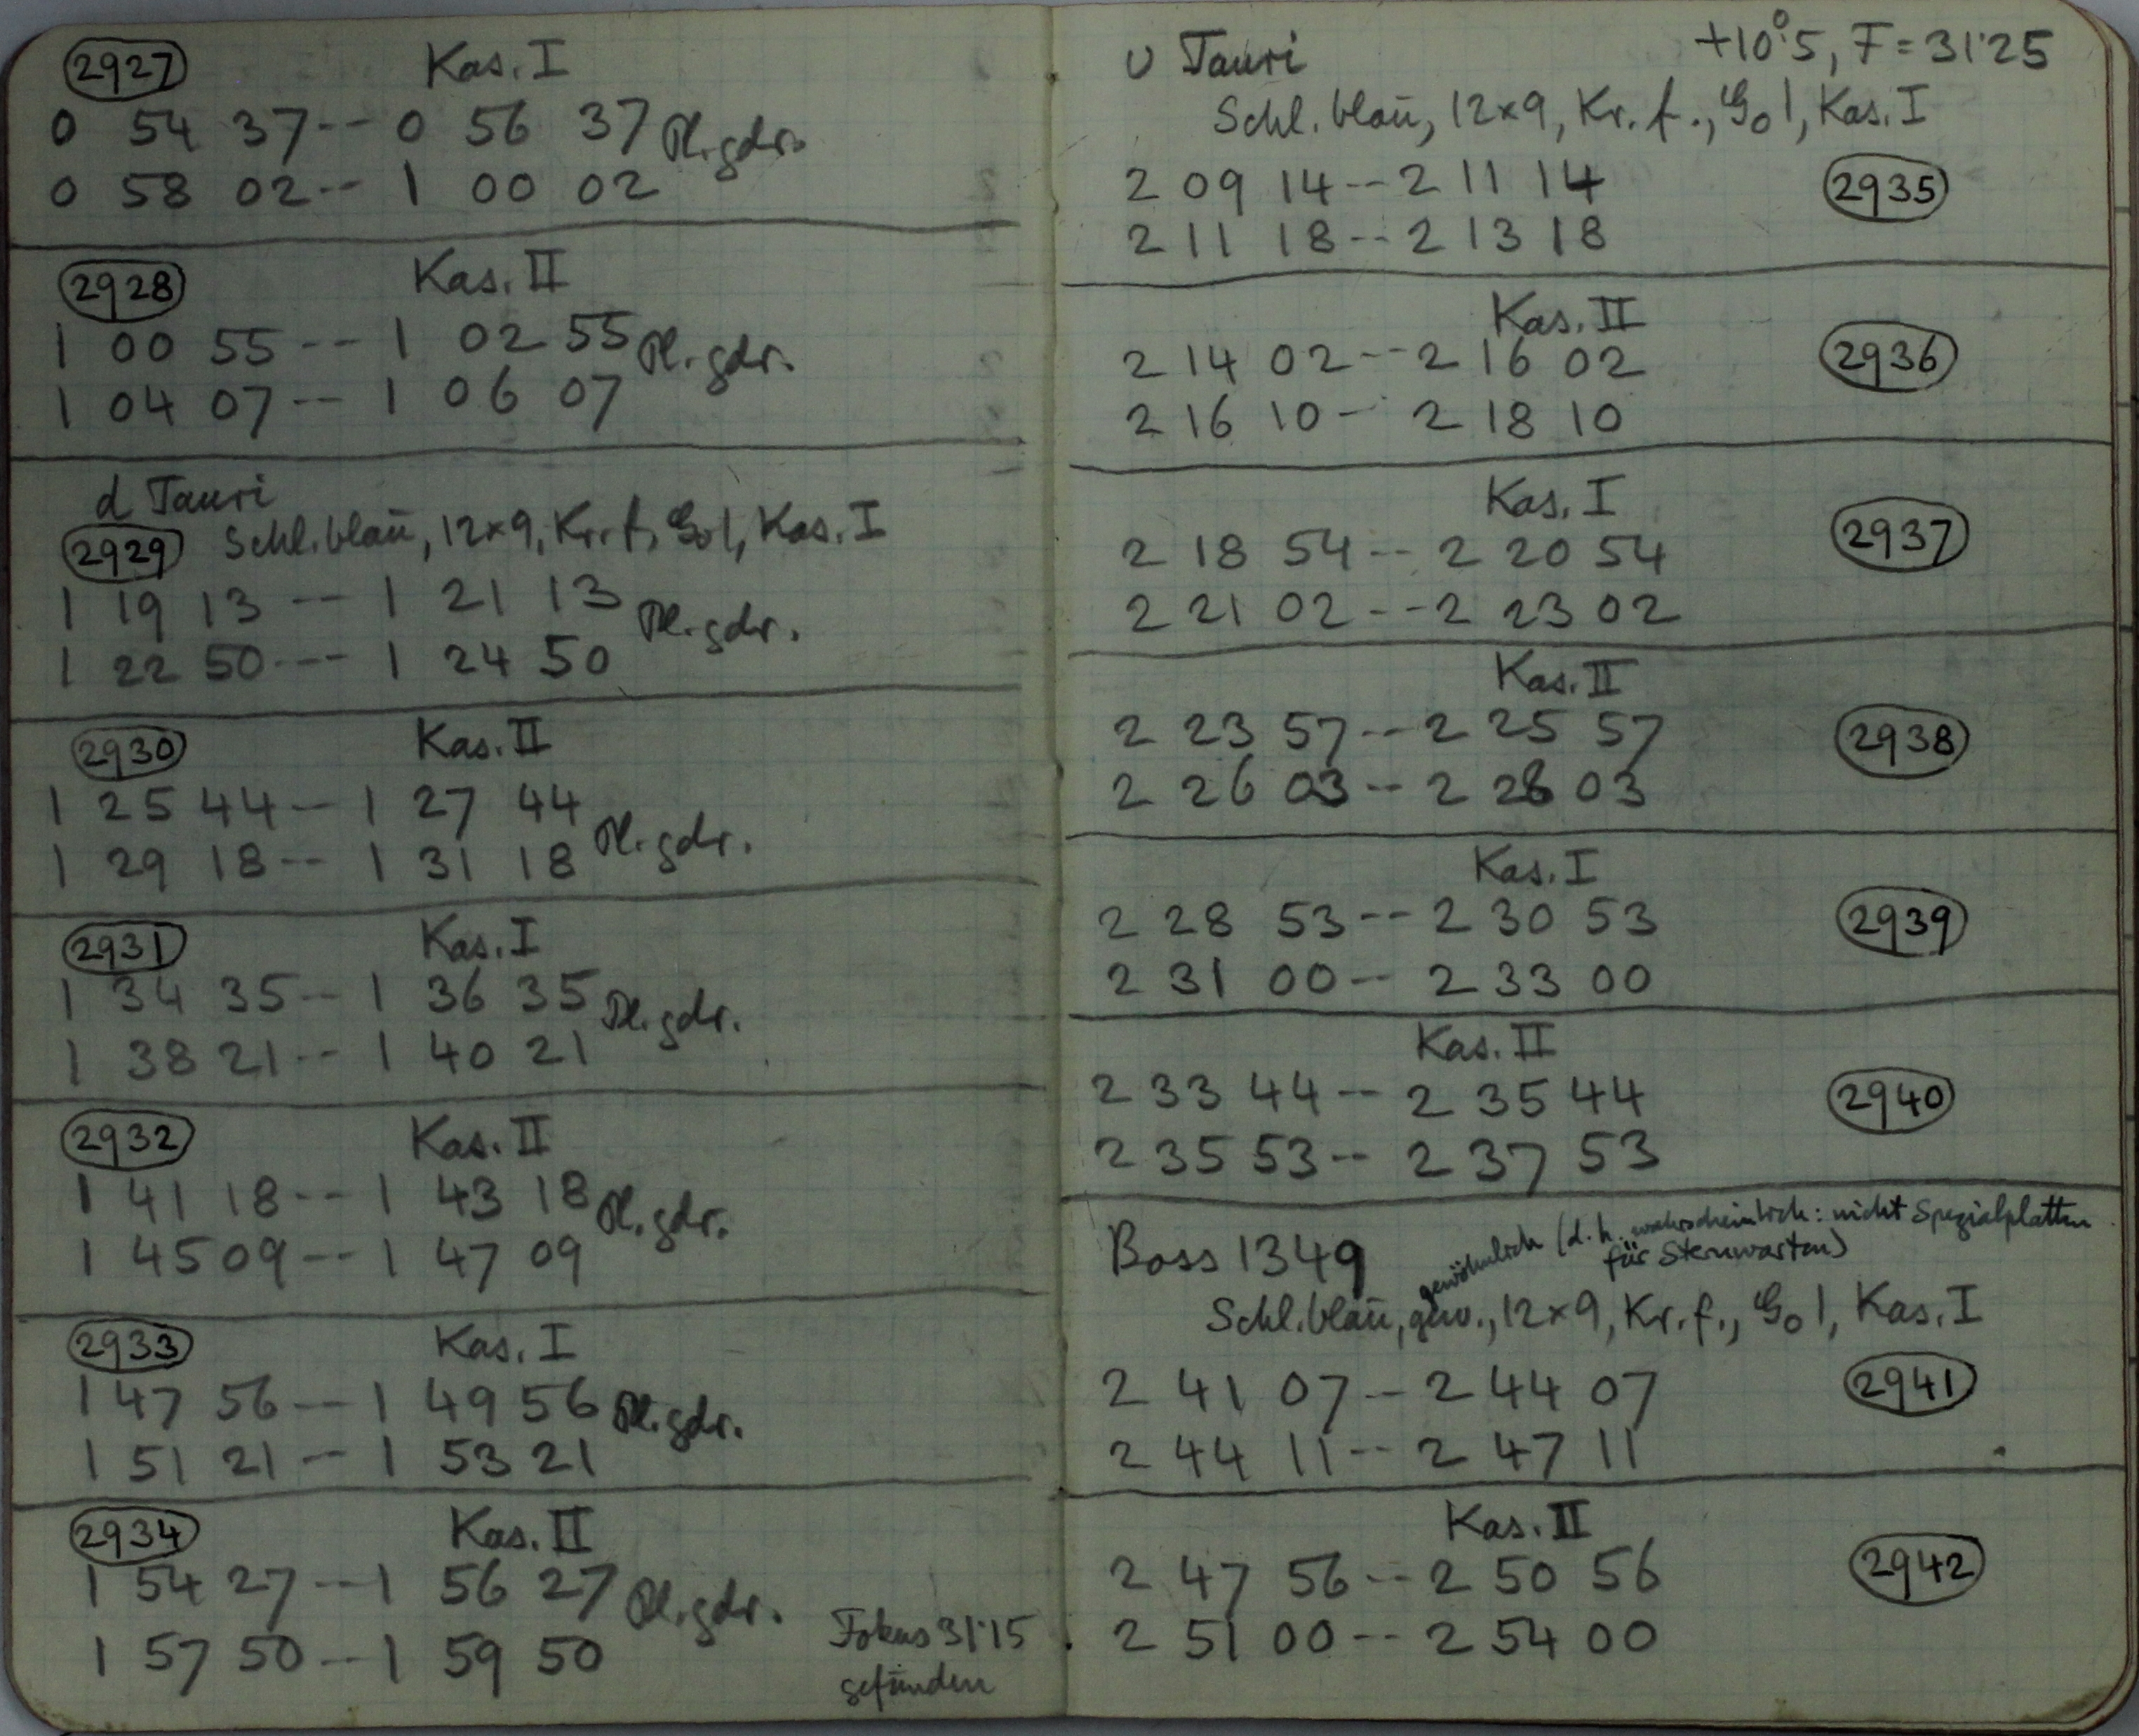 2927 Kas. I
0 54 37--0 56 37 Pl. gdr.
0 58 02--1 00 02
2928 Kas. II
1 00 55--1 02 55 Pl. gdr.
1 04 07--1 06 07
d Tauri
2929 Schl. blau, 12×9, Kr. f., G₀1, Kas. I
1 19 13--1 21 13 Pl. gdr.
1 22 50---1 24 50
2930 Kas. II
1 25 44--1 27 44 Pl. gdr.
1 29 18--1 31 18
2931 Kas. I
1 34 35--1 36 35 Pl. gdr.
1 38 21--1 40 21
2932 Kas. II
1 41 18--1 43 18 Pl. gdr.
1 45 09--1 47 09
2933 Kas. I
1 47 56--1 49 56 Pl. gdr.
1 51 21--1 53 21
2934 Kas. II
1 54 27--1 56 27 Pl. gdr.
1 57 50--1 59 50
Fokus 31·15
gefunden
υ Tauri +10°.5, F=31·25
Schl. blau, 12×9, Kr. f., G₀1, Kas. I
2 09 14--2 11 14 2935
2 11 18--2 13 18
Kas. II
2 14 02--2 16 02 2936
2 16 10--2 18 10
Kas. I
2 18 54--2 20 54 2937
2 21 02--2 23 02
Kas. II
2 23 57--2 25 57 2938
2 26 03--2 28 03
Kas. I
2 28 53--2 30 53 2939
2 31 00--2 33 00
Kas. II
2 33 44--2 35 44 2940
2 35 53--2 37 53
Boss 1349 gewöhnlich (d.h. wahrscheinlich: nicht Spezialplatten
für Sternwarten)
Schl. blau, gew., 12×9, Kr. f., G₀1, Kas. I
2 41 07--2 44 07 2941
2 44 11--2 47 11
Kas. II
2 47 56--2 50 56 2942
2 51 00--2 54 00